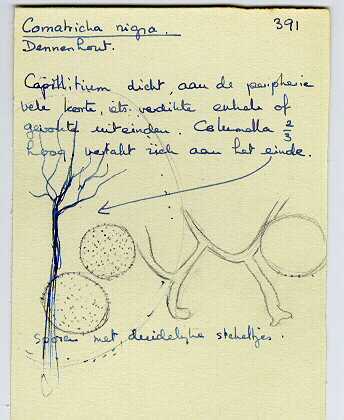 Comatricha nigra. 391
Dennenhout.
Capillitium dicht, aan de peripherie
vele korte, iets verdikte enkele of
gevorkte uiteinden. Columella 2/3
hoog vertakt zich aan het einde.
sporen met duidelijke stekeltjes.